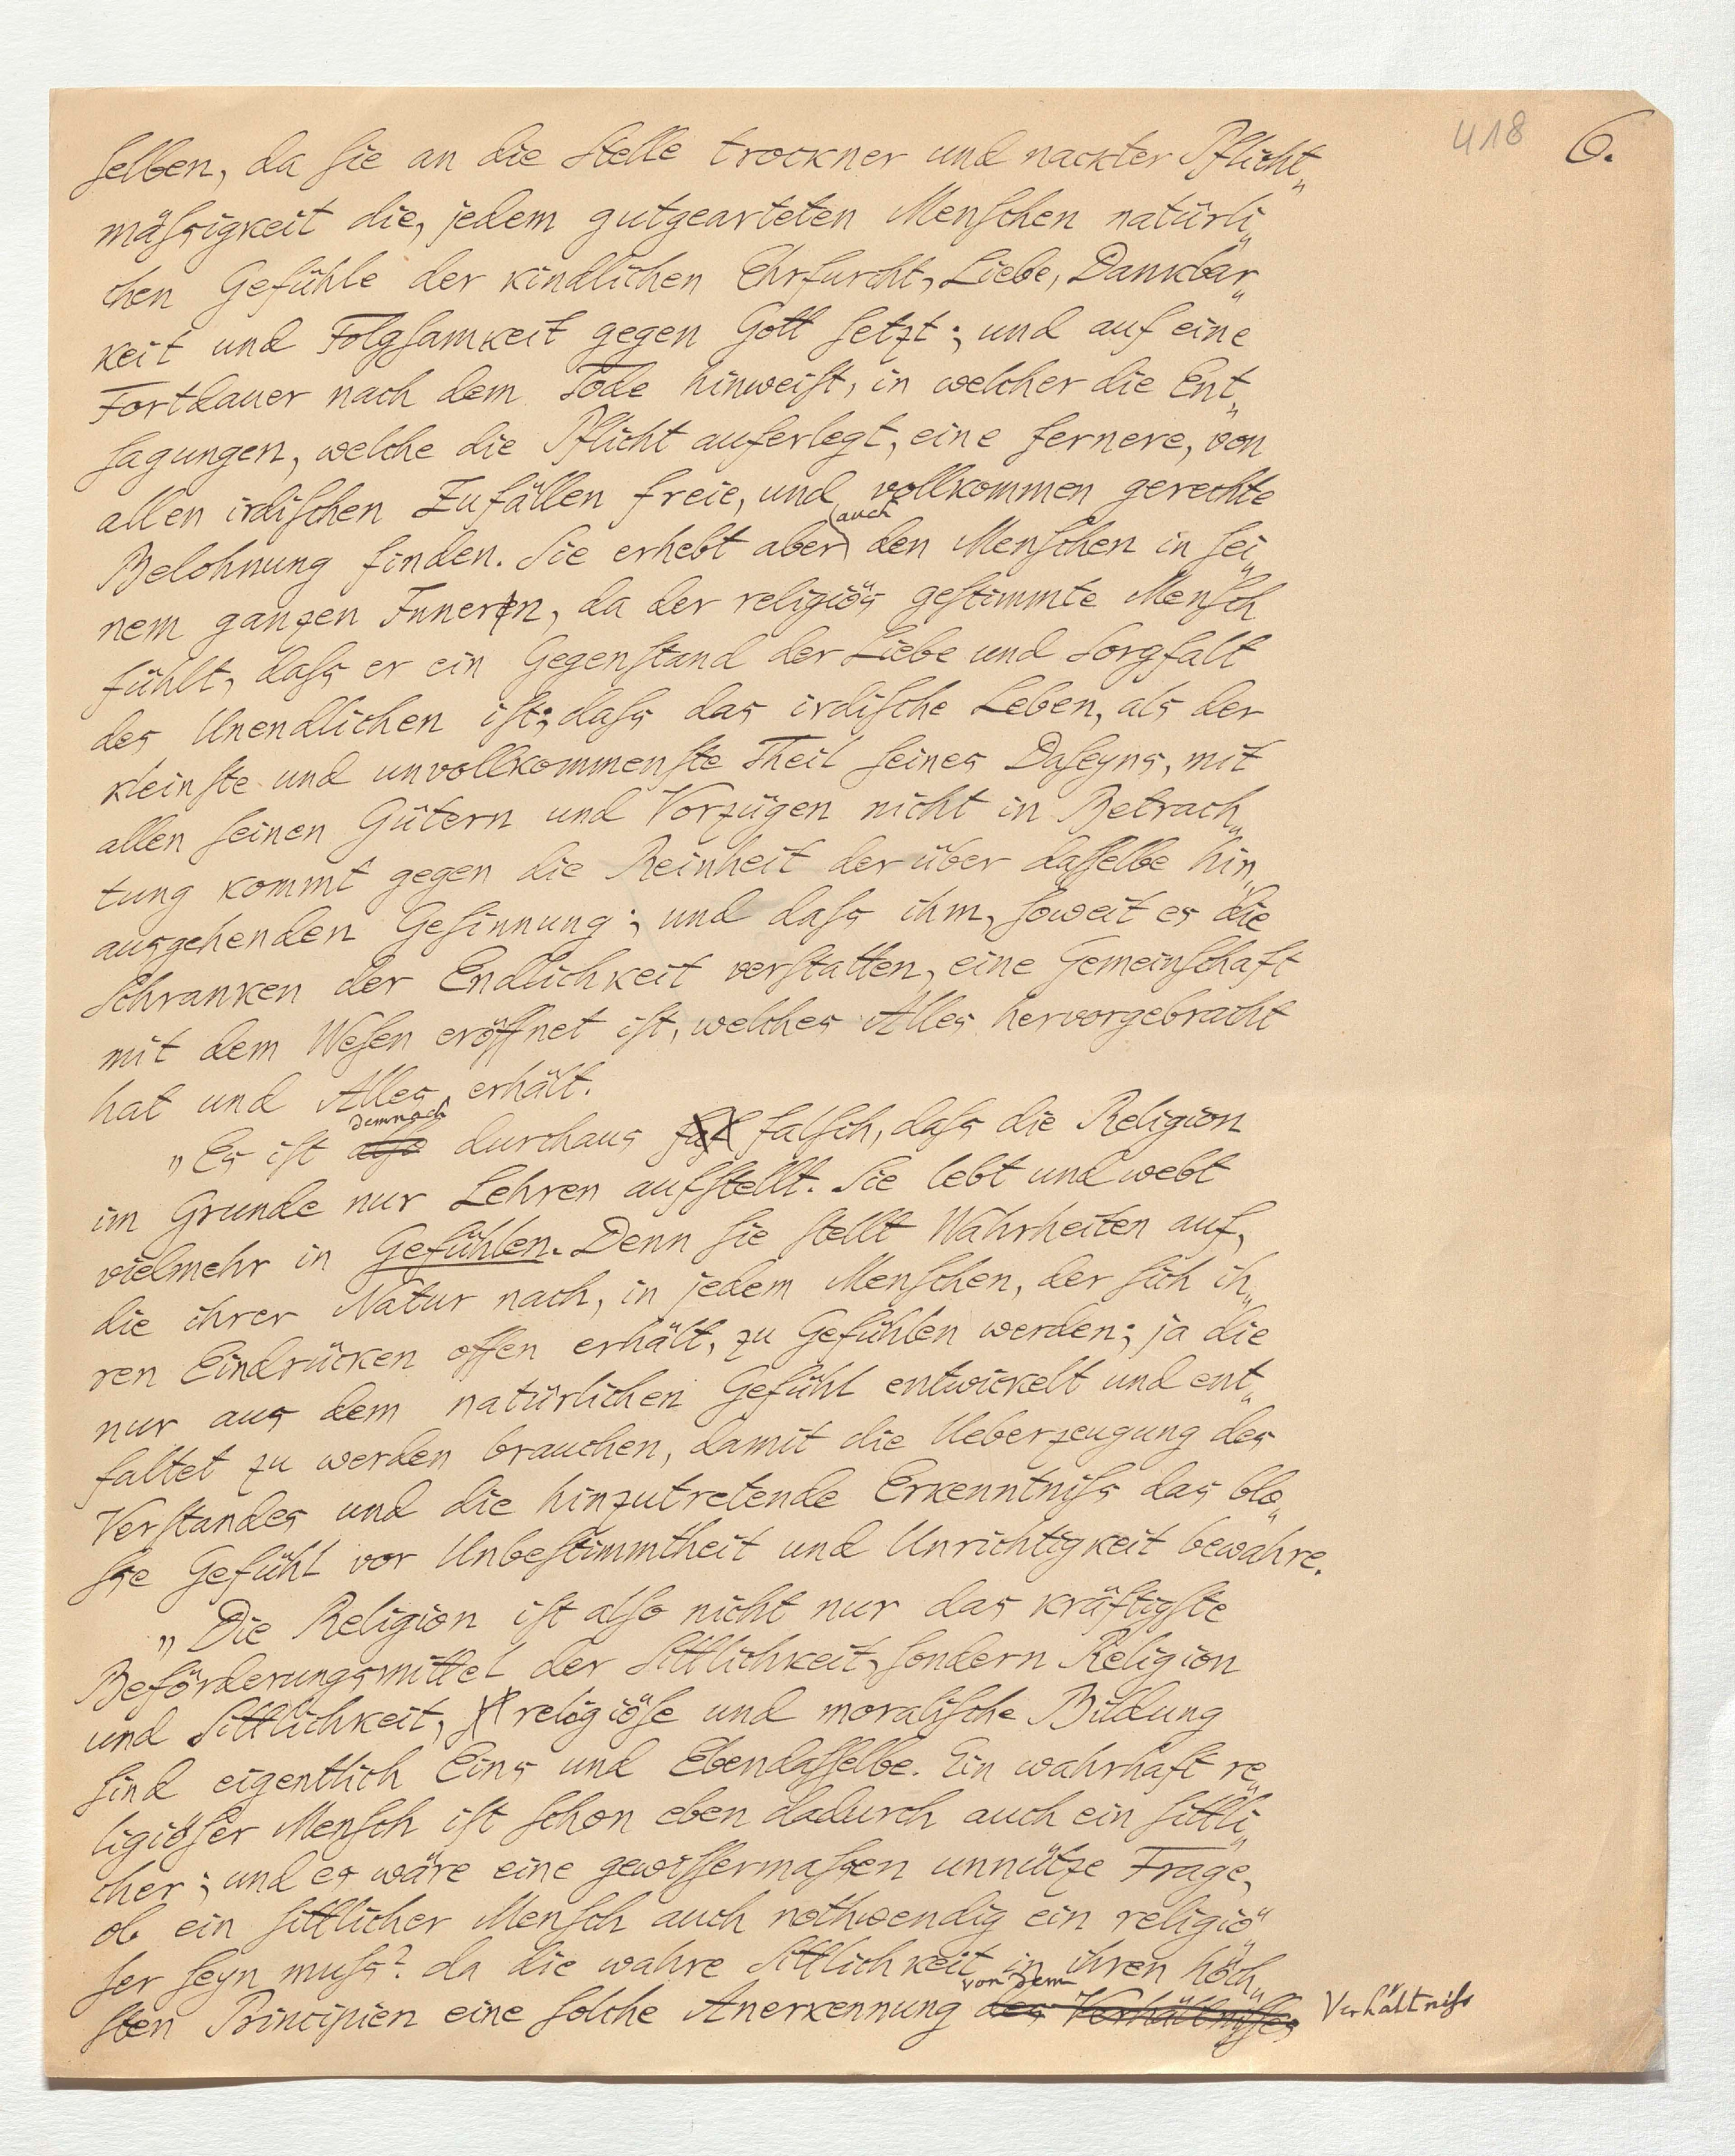 418 6.
selben, da sie an die Stelle trockner und nackter Pflicht„
mässigkeit die, jedem gutgearteten Menschen natürli„
chen Gefühle der kindlichen Ehrfurcht, Liebe, Dankbar„
keit und Folgsamkeit gegen Gott setzt; und auf eine
Fortdauer nach dem Tode hinweist, in welcher die Ent„
sagungen, welche die Pflicht auferlegt, eine fernere, von
allen irdischen Zufällen freie, und vollkommen gerechte
Belohnung finden. Sie erhebt aber auch den Menschen in sei„
nem ganzen Innern, da der religiös gestimmte Mensch
fühlt, dass er ein Gegenstand der Liebe und Sorgfalt
des Unendlichen ist; dass das irdische Leben, als der
kleinste und unvollkommenste Theil seines Daseyns, mit
allen seinen Gütern und Vorzügen nicht in Betrach„
tung kommt gegen die Reinheit der über dasselbe hin„
ausgehenden Gesinnung; und dass ihm, soweit es die
Schranken der Endlichkeit verstatten, eine Gemeinschaft
mit dem Wesen eröffnet ist, welches Alles hervorgebracht
hat und Alles erhält.
„Es ist also demnach durchaus falsch, dass die Religion
im Grunde nur Lehren aufstellt. Sie lebt und webt
vielmehr in Gefühlen. Denn sie stellt Wahrheiten auf,
die ihrer Natur nach, in jedem Menschen, der sich ih„
ren Eindrücken offen erhält, zu Gefühlen werden; ja die
nur aus dem natürlichen Gefühl entwickelt und ent„
faltet zu werden brauchen, damit die Ueberzeugung des
Verstandes und die hinzutretende Erkenntniss das blo„
sse Gefühl vor Unbestimmtheit und Unrichtigkeit bewahre.
„Die Religion ist also nicht nur das kräftigste
Beförderungsmittel der Sittlichkeit, sondern Religion
und Sittlichkeit, religiöse und moralische Bildung
sind eigentlich Eins und Ebendasselbe. Ein wahrhaft re„
ligiöser Mensch ist schon eben dadurch auch ein sittli„
cher; und es wäre eine gewissermassen unnütze Frage,
ob ein sittlicher Mensch auch nothwendig ein religiö„
ser seyn muss? da die wahre Sittlichkeit in ihren höch„
sten Principien eine solche Anerkennung des Verhältnisses von dem Verhältniss